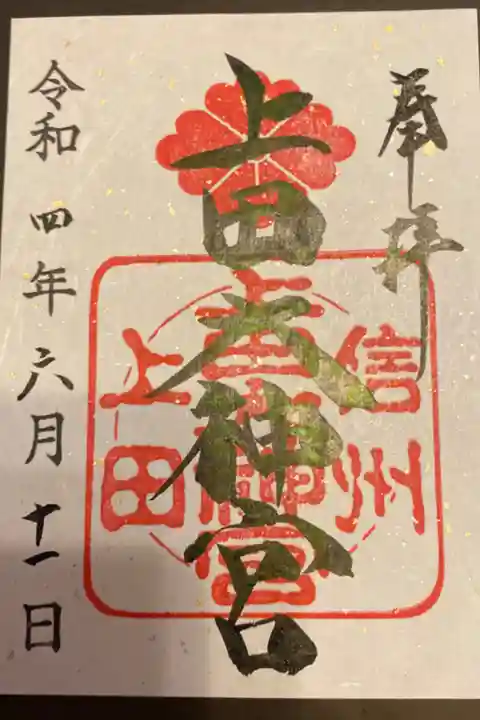 奉拝
上田大神宮
信州
上田
令和四年六月十一日